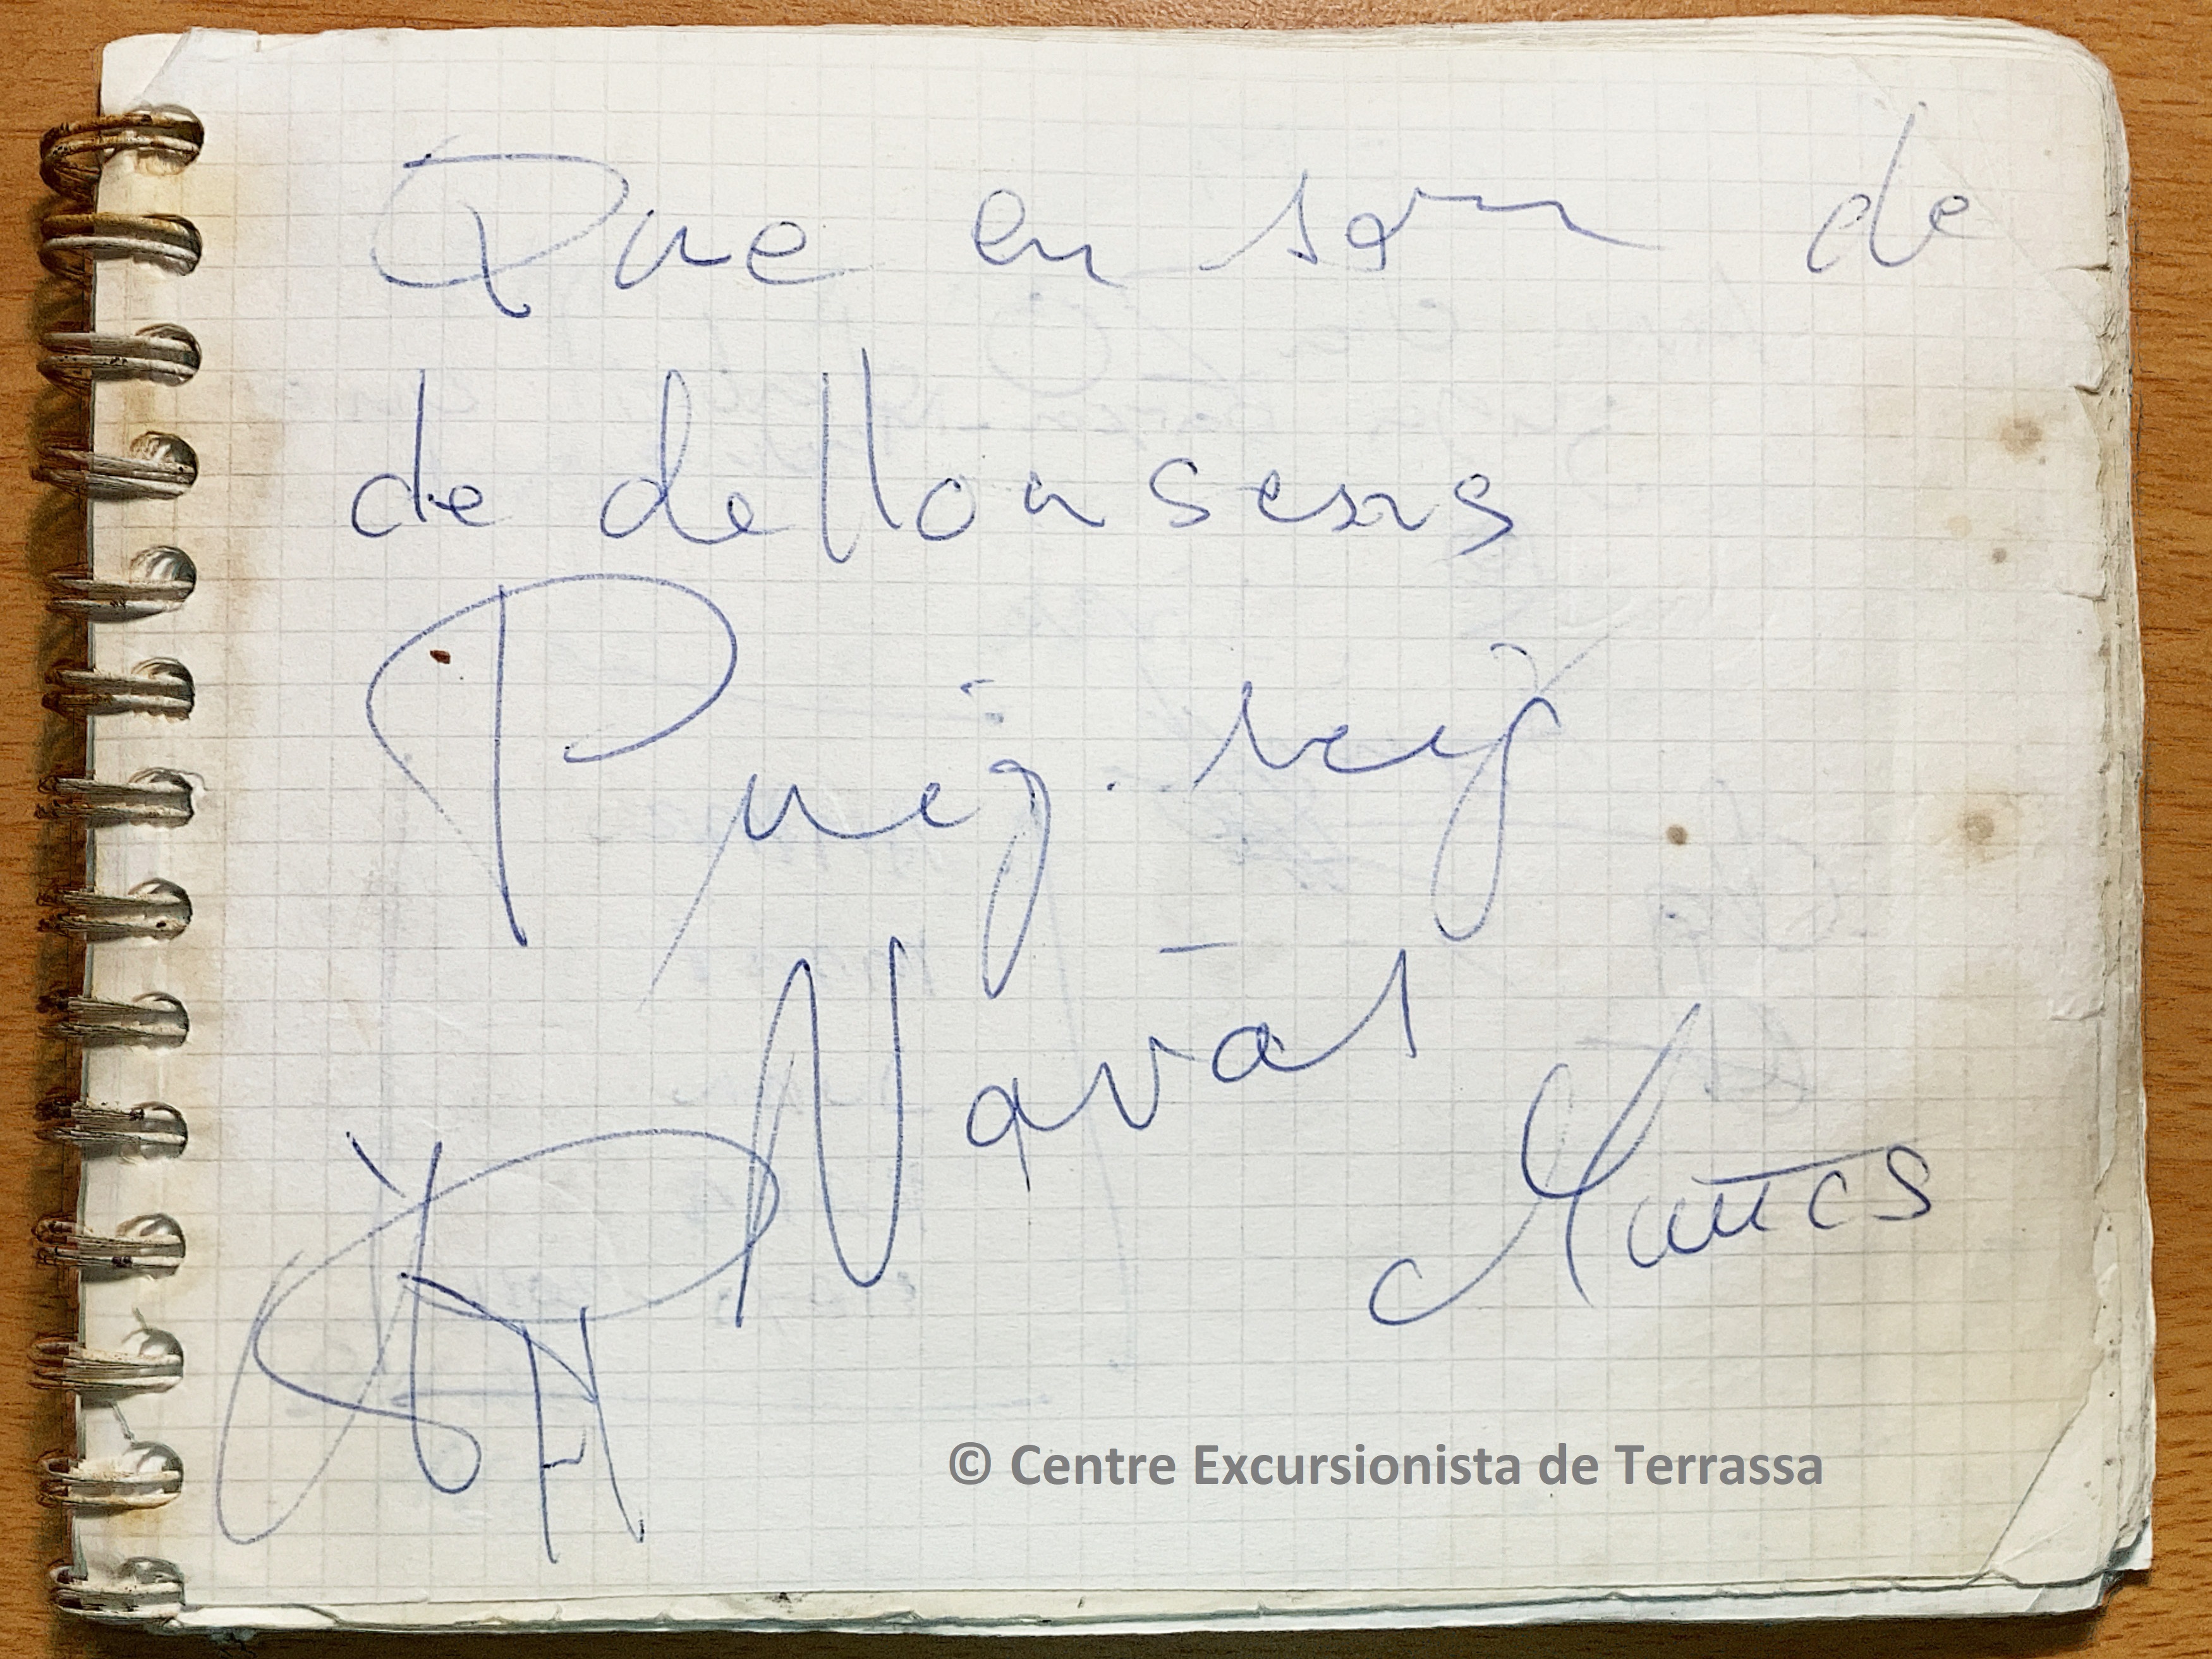 Que en som de
de dellonsesns
Puig-reig
Navàs
© Centre Excursionista de Terrassa